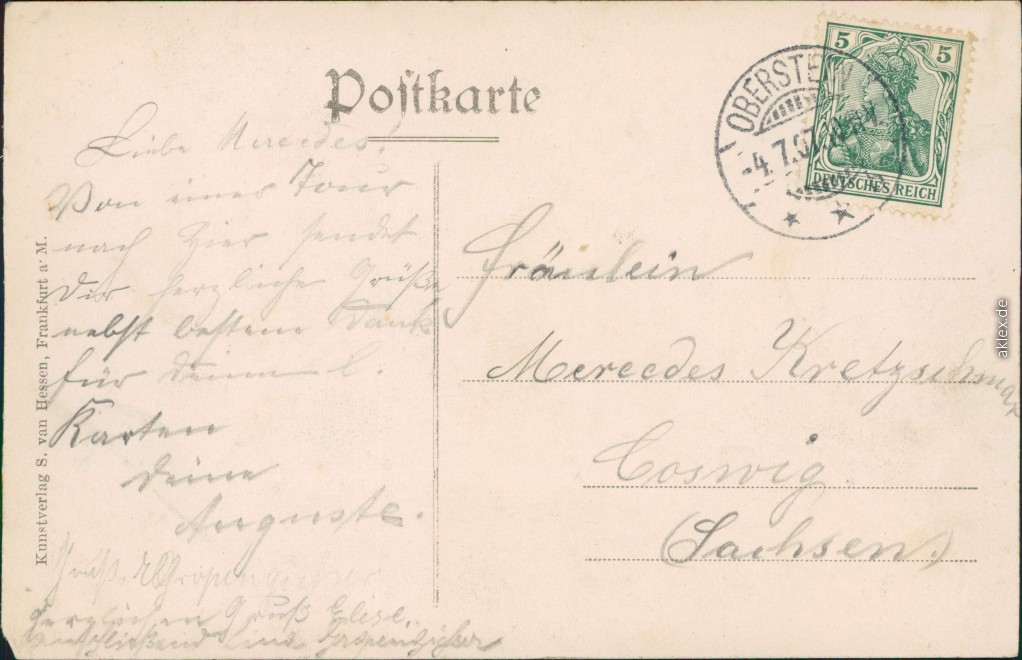 Postkarte
5 5
DEUTSCHES REICH
OBERSTEIN
-4.7.07
Liebe Mercedes!
Von einer Tour
nach hier sendet
Dir herzliche Grüße,
nebst bestem Dank
für Deine l.
Karten
Deine
Auguste.
Gruß
Herzlichen Gruß Elise.
Fräulein
Mercedes Kretzschmar
Coswig
(Sachsen)
Kunstverlag S. van Hessen, Frankfurt a. M.
aklex.de